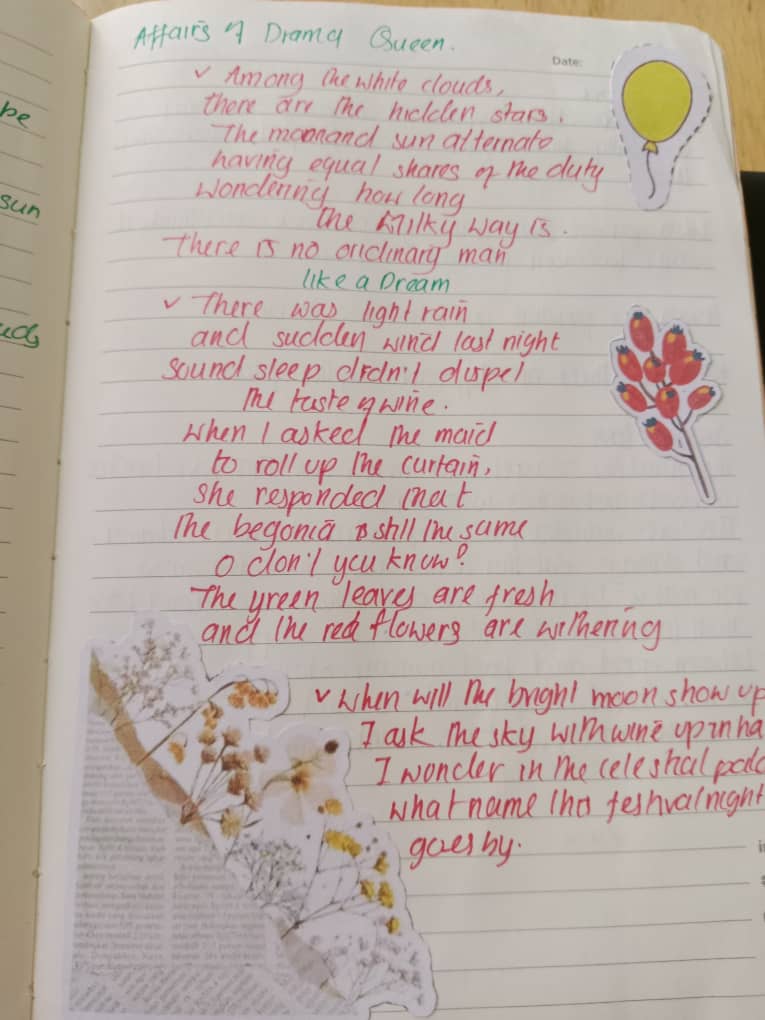 Affairs of Drama Queen.
Date:
✓ Among the white clouds,
there are the hidden stars.
The moon and sun alternate
having equal shares of the duty
wondering how long
the Milky way is.
There is no ordinary man
like a Dream
✓ There was light rain
and sudden wind last night
Sound sleep didn't dispel
the taste of wine.
when I asked the maid
to roll up the curtain,
she responded that
The begonia is still the same
O don't you know?
The green leaves are fresh
and the red flowers are withering
✓ when will the bright moon show up
I ask the sky with wine up in ha
I wonder in the celestial pala
what name this festival night
goes by.
be
sun